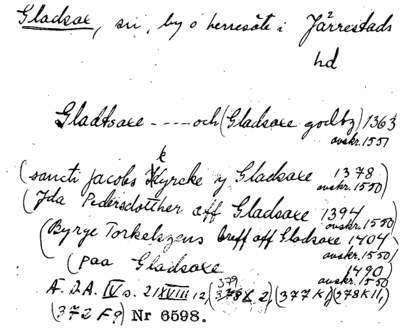 Gladsax, sn, by o herresäte i Järrestads
hd
Gladtsaxe ----- och (Gladsaxe godtz) 1363
avskr. 1551
(sancti Jacobs Kyrcke y Gladsaxe 1378
avskr. 1550)
(Jda Pedersdotther aff Gladsaxe 1394
avskr. 1550)
(Byrge Torkelszens breff aff Gladsaxe 1404
avskr. 1550)
(paa Gladsaxe 1490
avskr. 1550)
Æ. D. A. IV s. 21 XVIII 12, (377 K) (378 K 11,
(372 F9) Nr 6598.